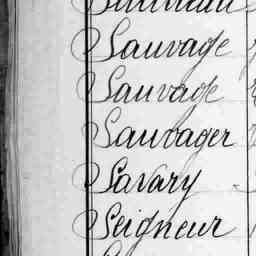 Sauvage
Sauvage
Sauvager
Savary
Seigneur